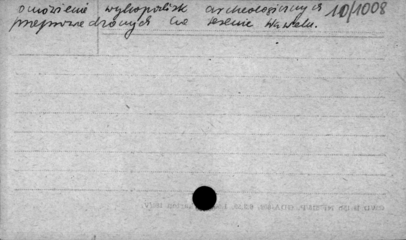 omówienie wykopalisk archeologicznych 10/1008
przeprowadzonych na terenie Wawelu.